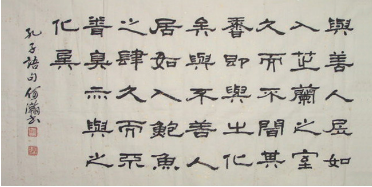 與善人居如
入芷蘭之室
久而不聞其
香即與之化
矣與不善人
居如入鮑魚
之肆久而不
臭亦與之
化矣
孔子語句